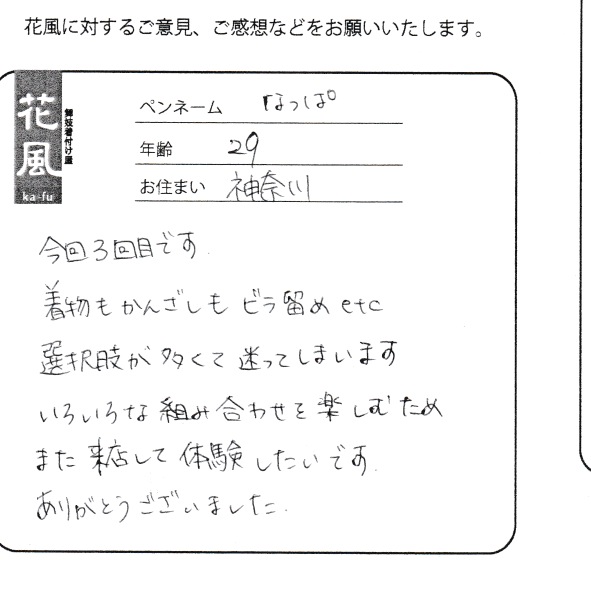 花風に対するご意見、ご感想などをお願いいたします。
花風
舞妓着付け屋
ka-fu
ペンネーム はっぱ
年齢 29
お住まい 神奈川
今回3回目です.
着物もかんざしもビラ留めetc
選択肢が多くて迷ってしまいます
いろいろな組み合わせを楽しむため
また来店して体験したいです.
ありがとうございました.